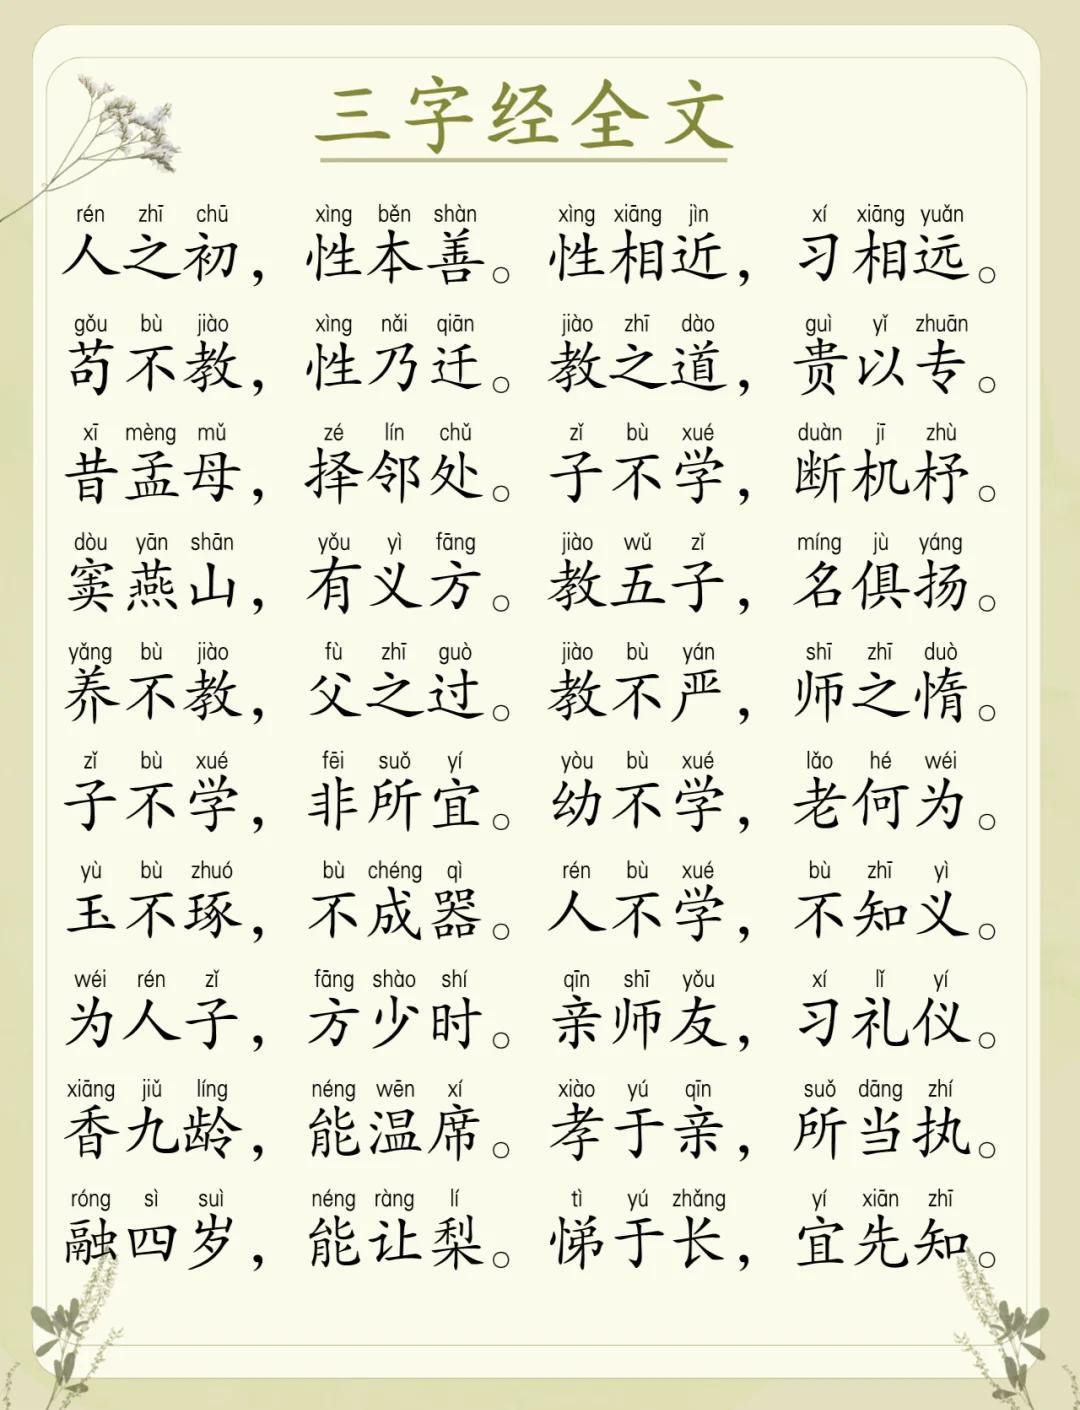 三字经全文
rén zhī chū xìng běn shàn xìng xiāng jìn xí xiāng yuǎn
人之初，性本善。性相近，习相远。
gǒu bù jiào xìng nǎi qiān jiào zhī dào guì yǐ zhuān
苟不教，性乃迁。教之道，贵以专。
xī mèng mǔ zé lín chǔ zǐ bù xué duàn jī zhù
昔孟母，择邻处。子不学，断机杼。
dòu yān shān yǒu yì fāng jiào wǔ zǐ míng jù yáng
窦燕山，有义方。教五子，名俱扬。
yǎng bù jiào fù zhī guò jiào bù yán shī zhī duò
养不教，父之过。教不严，师之惰。
zǐ bù xué fēi suǒ yí yòu bù xué lǎo hé wéi
子不学，非所宜。幼不学，老何为。
yù bù zhuó bù chéng qì rén bù xué bù zhī yì
玉不琢，不成器。人不学，不知义。
wéi rén zǐ fāng shào shí qīn shī yǒu xí lǐ yí
为人子，方少时。亲师友，习礼仪。
xiāng jiǔ líng néng wēn xí xiào yú qīn suǒ dāng zhí
香九龄，能温席。孝于亲，所当执。
róng sì suì néng ràng lí tì yú zhǎng yí xiān zhī
融四岁，能让梨。悌于长，宜先知。